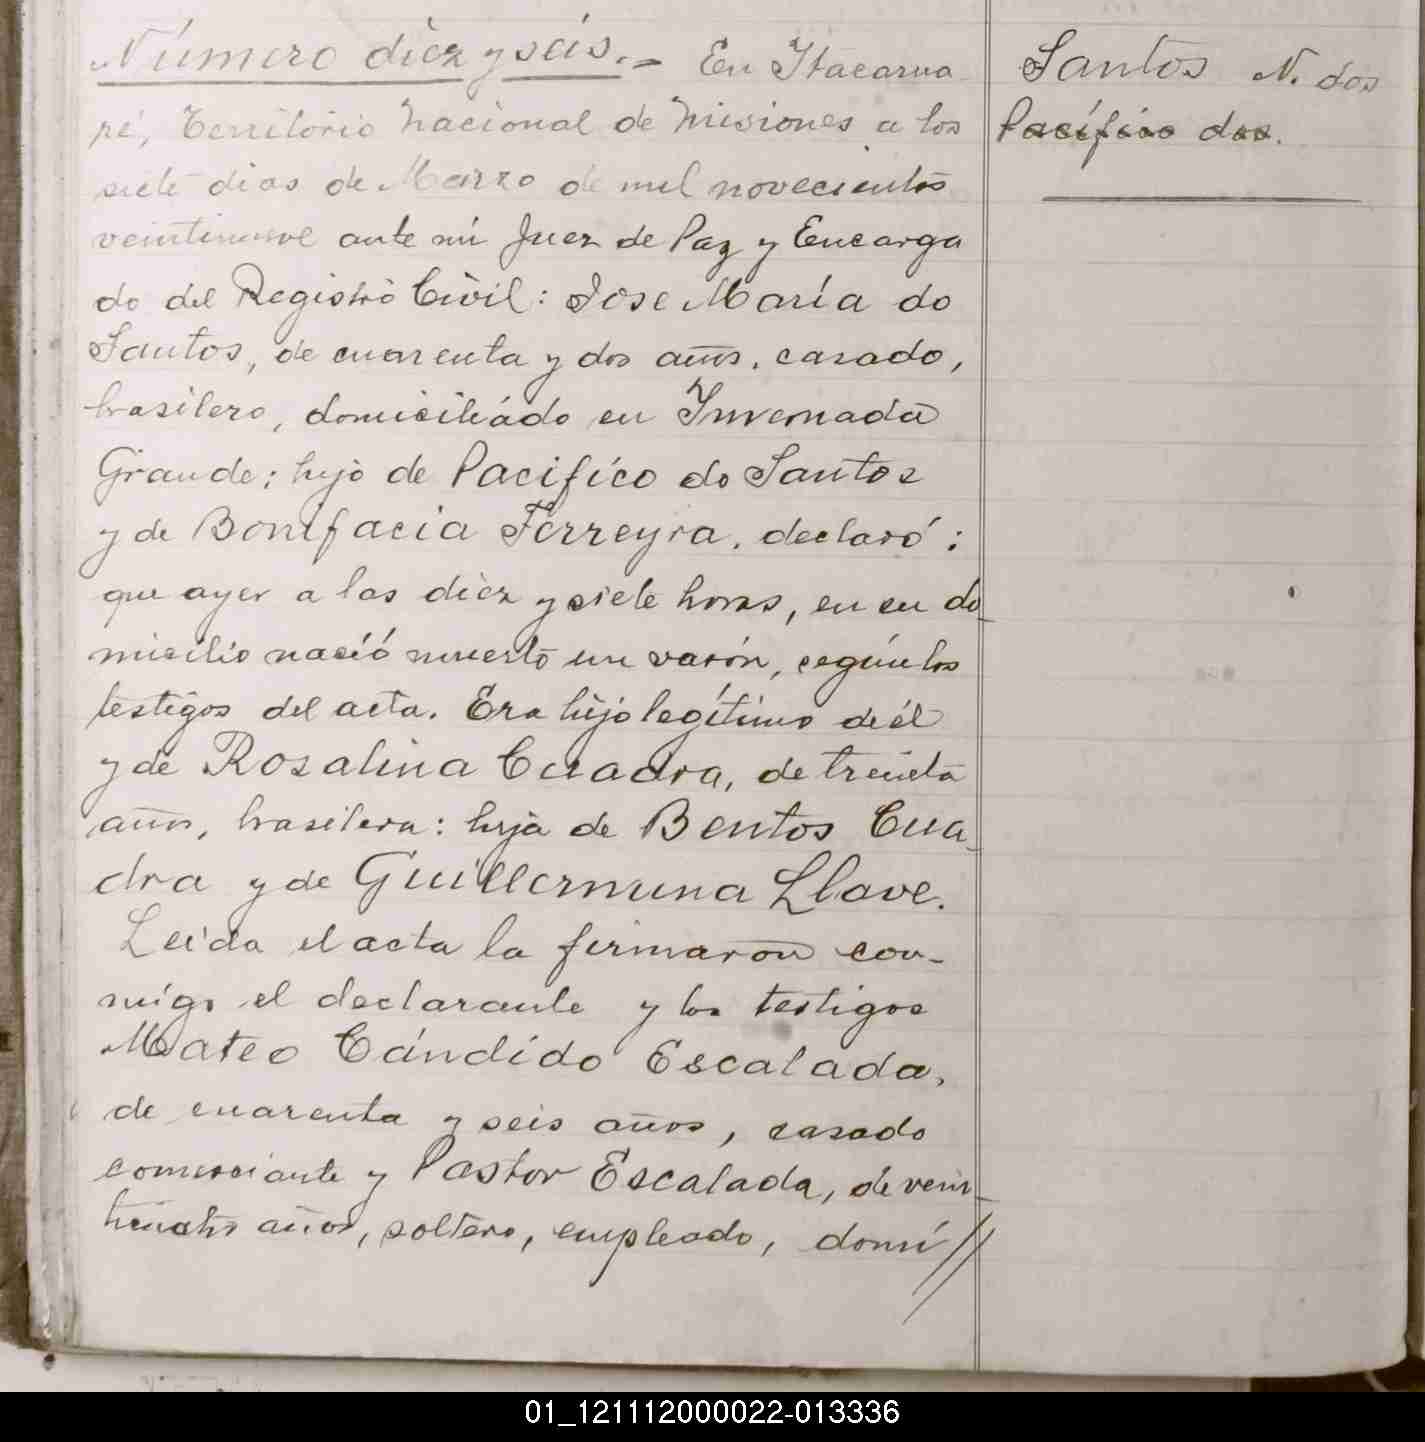 Número diez y seis.- En Itacarua
ré, Territorio Nacional de Misiones a los
siete dias de Marzo de mil novecientos
veintinueve ante mí Juez de Paz y Encarga
do del Registro Civil: Jose María do
Santos, de cuarenta y dos años, casado,
brasilero, domiciliádo en Invernada
Grande; hijo de Pacifico do Santos
y de Bonifacia Ferreyra, declaró:
que ayer a las diez y siete horas, en su do_
micilio nació muerto un varón, según los
testigos del acta. Era hijo legítimo de él
y de Rosalina Cuadra, de treinta
años, brasilera: hija de Bentos Cua_
dra y de Guillermina Llave.
Leida el acta la firmaron con-
migo el declarante y los testigos
Mateo Cándido Escalada,
de cuarenta y seis años, casado
comerciante y Pastor Escalada, de vein_
ticuatro años, soltero, empleado, domi//
Santos N. dos
Pacífico dos.
01_121112000022-013336